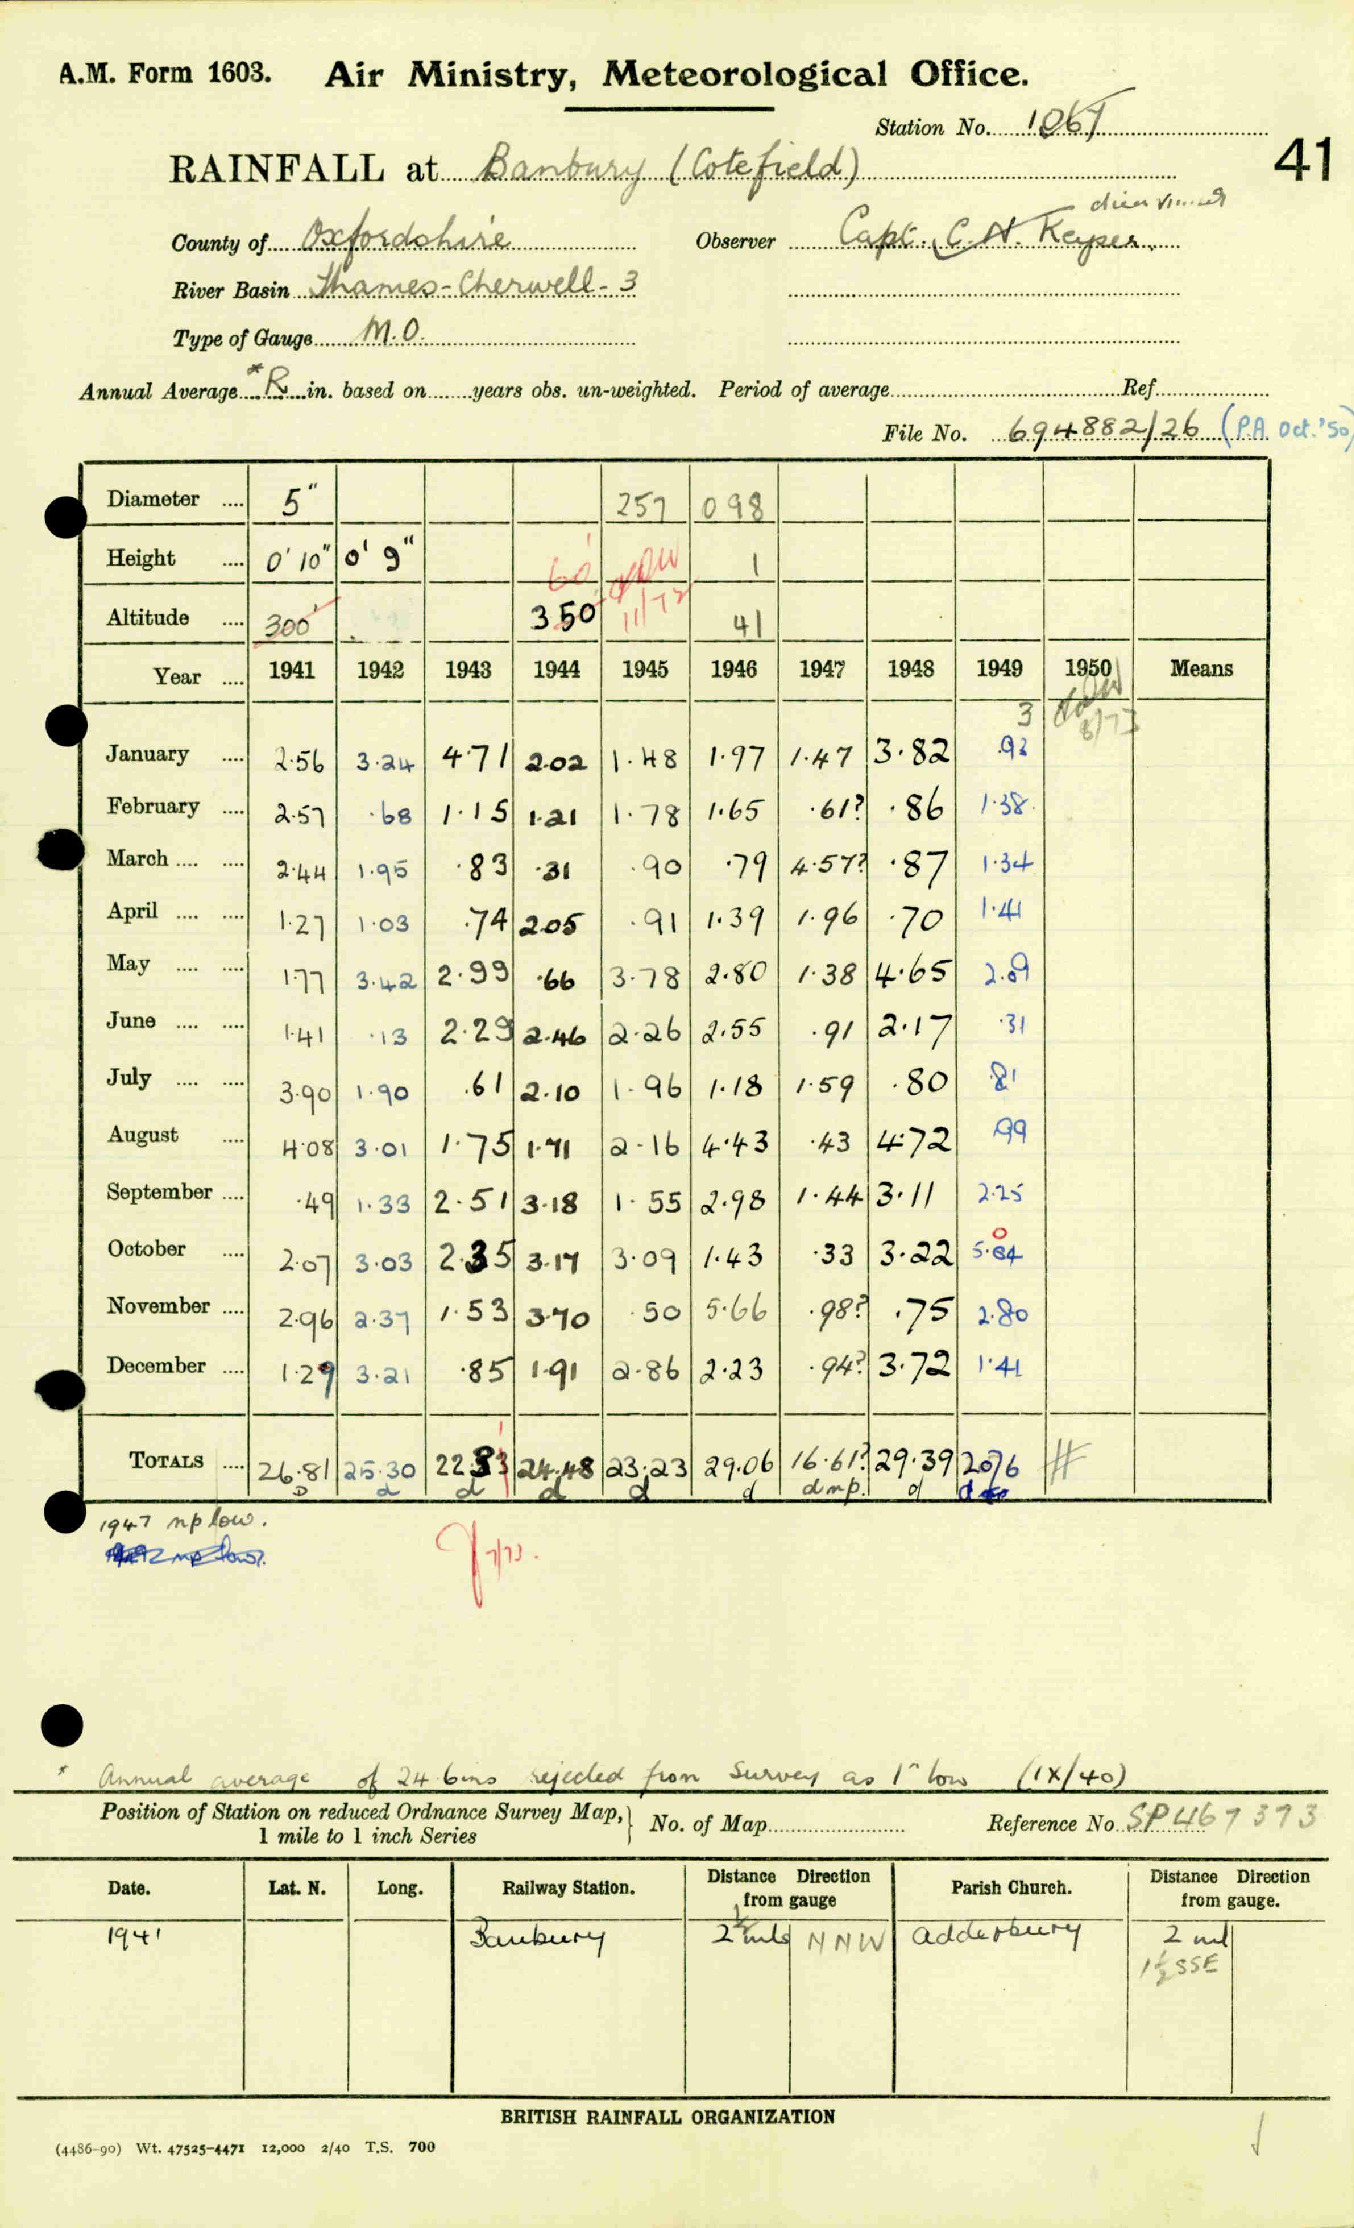 A.M. Form 1603. Air Ministry, Meteorological Office.
Station No. 1067
41
RAINFALL at Banbury (Cotefield)
County of Oxfordshire Observer Capt. C. N. Keyser.
River Basin Thames-Cherwell-3
Type of Gauge M.O.
Annual Average *R in. based on years obs. un-weighted. Period of average Ref.
File No. 694882/26 (P.A. Oct.'50)
Diameter 5" 257 098
Height 0' 10" 0' 9" 60' 1
Altitude 300' 350 11/72 41
Year 1941 1942 1943 1944 1945 1946 1947 1948 1949 1950 Means
3 8/73
January 2.56 3.24 4.71 2.02 1.48 1.97 1.47 3.82 .92
February 2.57 .68 1.15 1.21 1.78 1.65 .61? .86 1.38
March 2.44 1.95 .83 .31 .90 .79 4.57? .87 1.34
April 1.27 1.03 .74 2.05 .91 1.39 1.96 .70 1.41
May 1.77 3.42 2.99 .66 3.78 2.80 1.38 4.65 2.09
June 1.41 .13 2.29 2.46 2.26 2.55 .91 2.17 .31
July 3.90 1.90 .61 2.10 1.96 1.18 1.59 .80 .81
August 4.08 3.01 1.75 1.71 2.16 4.43 .43 4.72 .99
September .49 1.33 2.51 3.18 1.55 2.98 1.44 3.11 2.25
October 2.07 3.03 2.35 3.17 3.09 1.43 .33 3.22 5.04
November 2.96 2.37 1.53 3.70 .50 5.66 .98? .75 2.80
December 1.29 3.21 .85 1.91 2.86 2.23 .94? 3.72 1.41
TOTALS 26.81 25.30 22.31 24.48 23.23 29.06 16.61? 29.39 20.76 #
D d d d d d d mp. d d
1947 mp low.
7/73.
* Annual average of 24.6 ins rejected from Survey as 1" low (IX/40)
Position of Station on reduced Ordnance Survey Map, 1 mile to 1 inch Series } No. of Map Reference No. SP 467 373
Date. Lat. N. Long. Railway Station. Distance Direction from gauge Parish Church. Distance Direction from gauge.
1941 Banbury 2½ mls NNW Adderbury 2 ml
1½ SSE
BRITISH RAINFALL ORGANIZATION
(4486-90) Wt. 47525-4471 12,000 2/40 T.S. 700